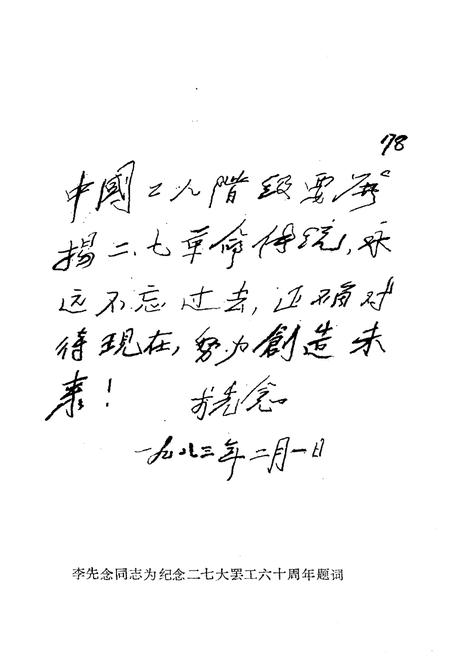 78
中國工人階级要發
揚二、七革命传统,永
远不忘过去,正确对
待現在,努力創造未
来!李先念
一九八三年二月一日
李先念同志为纪念二七大罢工六十周年题词